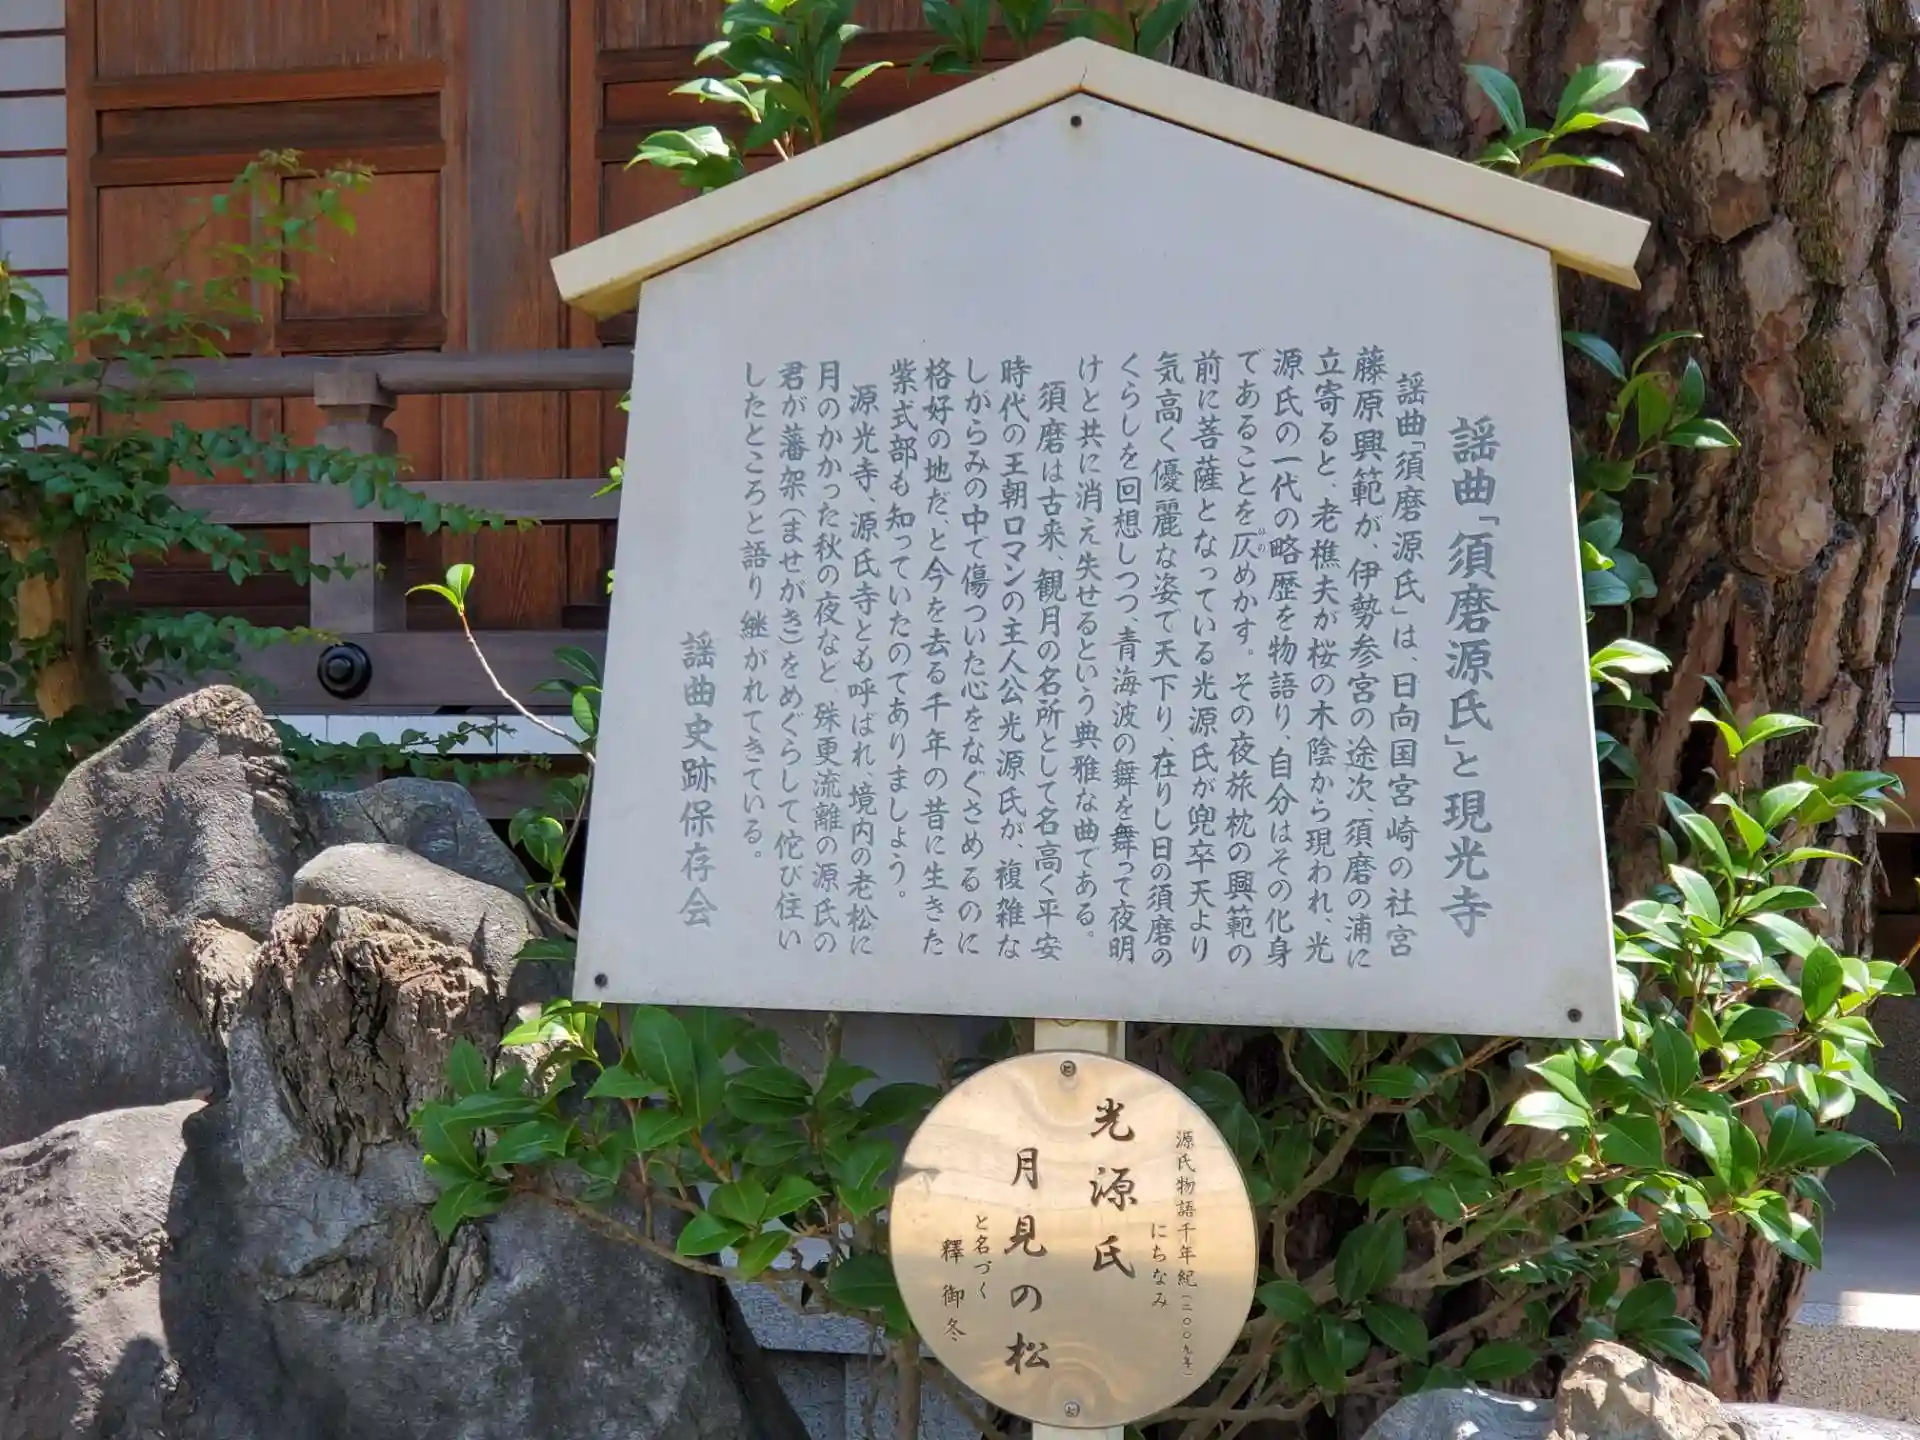 謡曲「須磨源氏」と現光寺
謡曲「須磨源氏」は、日向国宮崎の社宮
藤原興範が、伊勢参宮の途次、須磨の浦に
立寄ると、老樵夫が桜の木陰から現われ、光
源氏の一代の略歴を物語り、自分はその化身
であることを仄めかす。その夜旅枕の興範の
ほの
前に菩薩となっている光源氏が兜卒天より
気高く優麗な姿で天下り、在りし日の須磨の
くらしを回想しつつ、青海波の舞を舞って夜明
けと共に消え失せるという典雅な曲である。
須磨は古来、観月の名所として名高く平安
時代の王朝ロマンの主人公光源氏が、複雑な
しがらみの中で傷ついた心をなぐさめるのに
格好の地だ、と今を去る千年の昔に生きた
紫式部も知っていたのでありましょう。
源光寺、源氏寺とも呼ばれ、境内の老松に
月のかかった秋の夜など、殊更流離の源氏の
君が藩架（ませがき）をめぐらして佗び住い
したところと語り継がれてきている。
謡曲史跡保存会
源氏物語千年紀（二〇〇九年）
にちなみ
光源氏
月見の松
と名づく
釋御冬